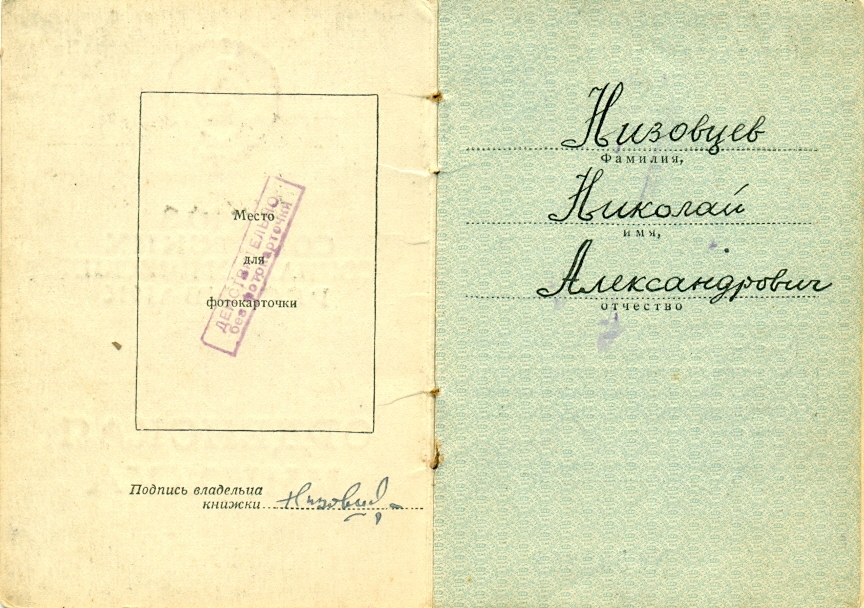 Место
для
фотокарточки
ДЕЙСТВИТЕЛЬНО
без фотокарточки
Подпись владельца
книжки
Низовцев
Фамилия,
Николай
имя,
Александрович
отчество